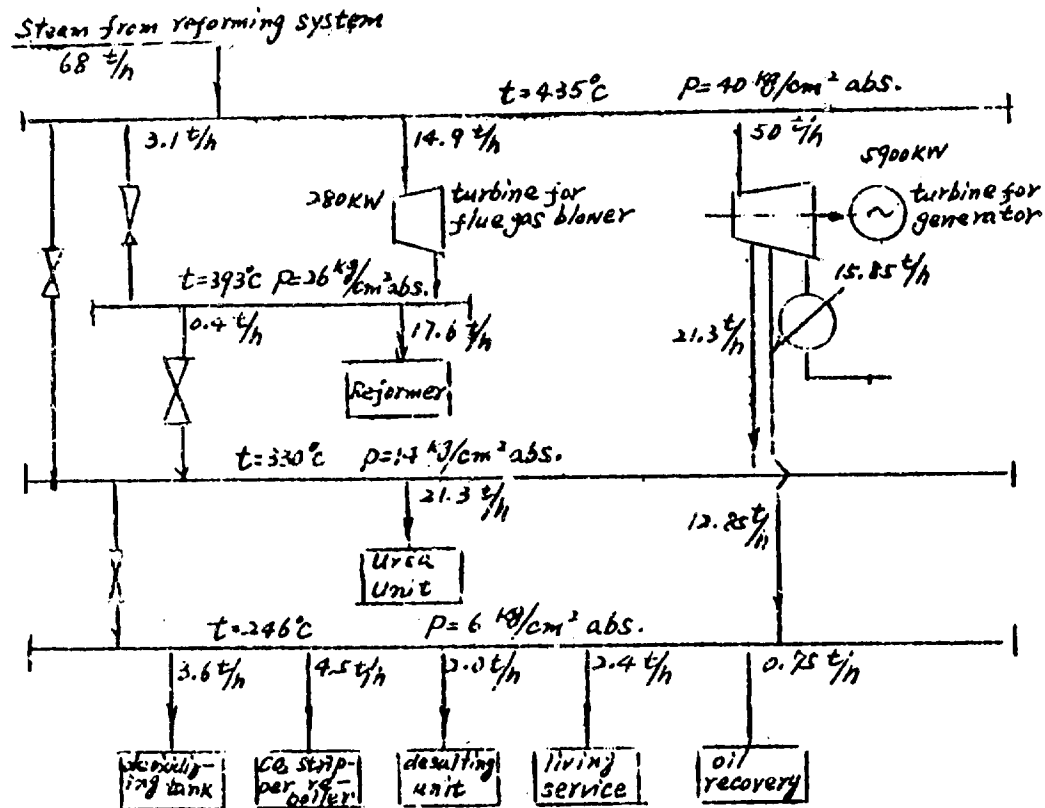 Steam from reforming system
68 t/h
t=435°C P=40 kg/cm² abs.
3.1 t/h
14.9 t/h
50 t/h
5900KW
280KW
turbine for
flue gas blower
turbine for
generator
15.85 t/h
t=393°C P=26 kg/cm² abs.
0.4 t/h
17.6 t/h
21.3 t/h
Reformer
t=330°C P=14 kg/cm² abs.
21.3 t/h
12.85 t/h
Urea
Unit
t=246°C P=6 kg/cm² abs.
3.6 t/h
4.5 t/h
2.0 t/h
2.4 t/h
0.75 t/h
ing tank
CO₂ strip-
per re-
boiler
desulting
unit
living
service
oil
recovery